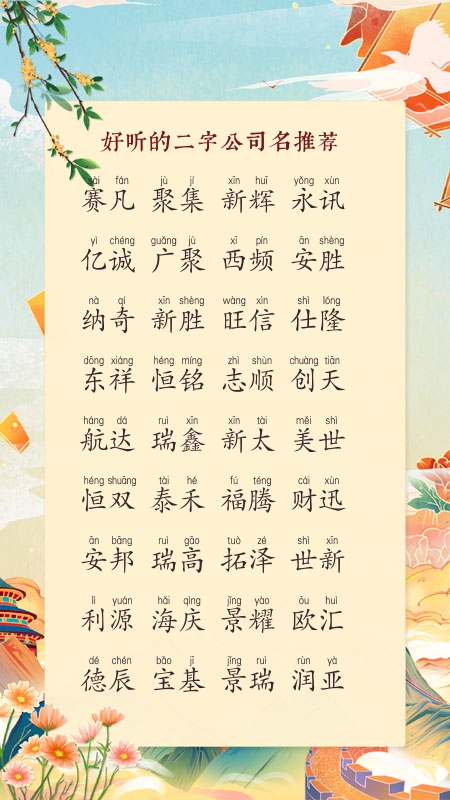 好听的二字公司名推荐
sài fán jù jí xīn huī yǒng xùn
赛凡 聚集 新辉 永讯
yì chéng guǎng jù xī pín ān shèng
亿诚 广聚 西频 安胜
nà qí xīn shèng wàng xìn shì lóng
纳奇 新胜 旺信 仕隆
dōng xiáng héng míng zhì shùn chuàng tiān
东祥 恒铭 志顺 创天
háng dá ruì xīn xīn tài měi shì
航达 瑞鑫 新太 美世
héng shuāng tài hé fú téng cái xùn
恒双 泰禾 福腾 财迅
ān bāng ruì gāo tuò zé shì xīn
安邦 瑞高 拓泽 世新
lì yuán hǎi qìng jǐng yào ōu huì
利源 海庆 景耀 欧汇
dé chén bǎo jī jǐng ruì rùn yà
德辰 宝基 景瑞 润亚